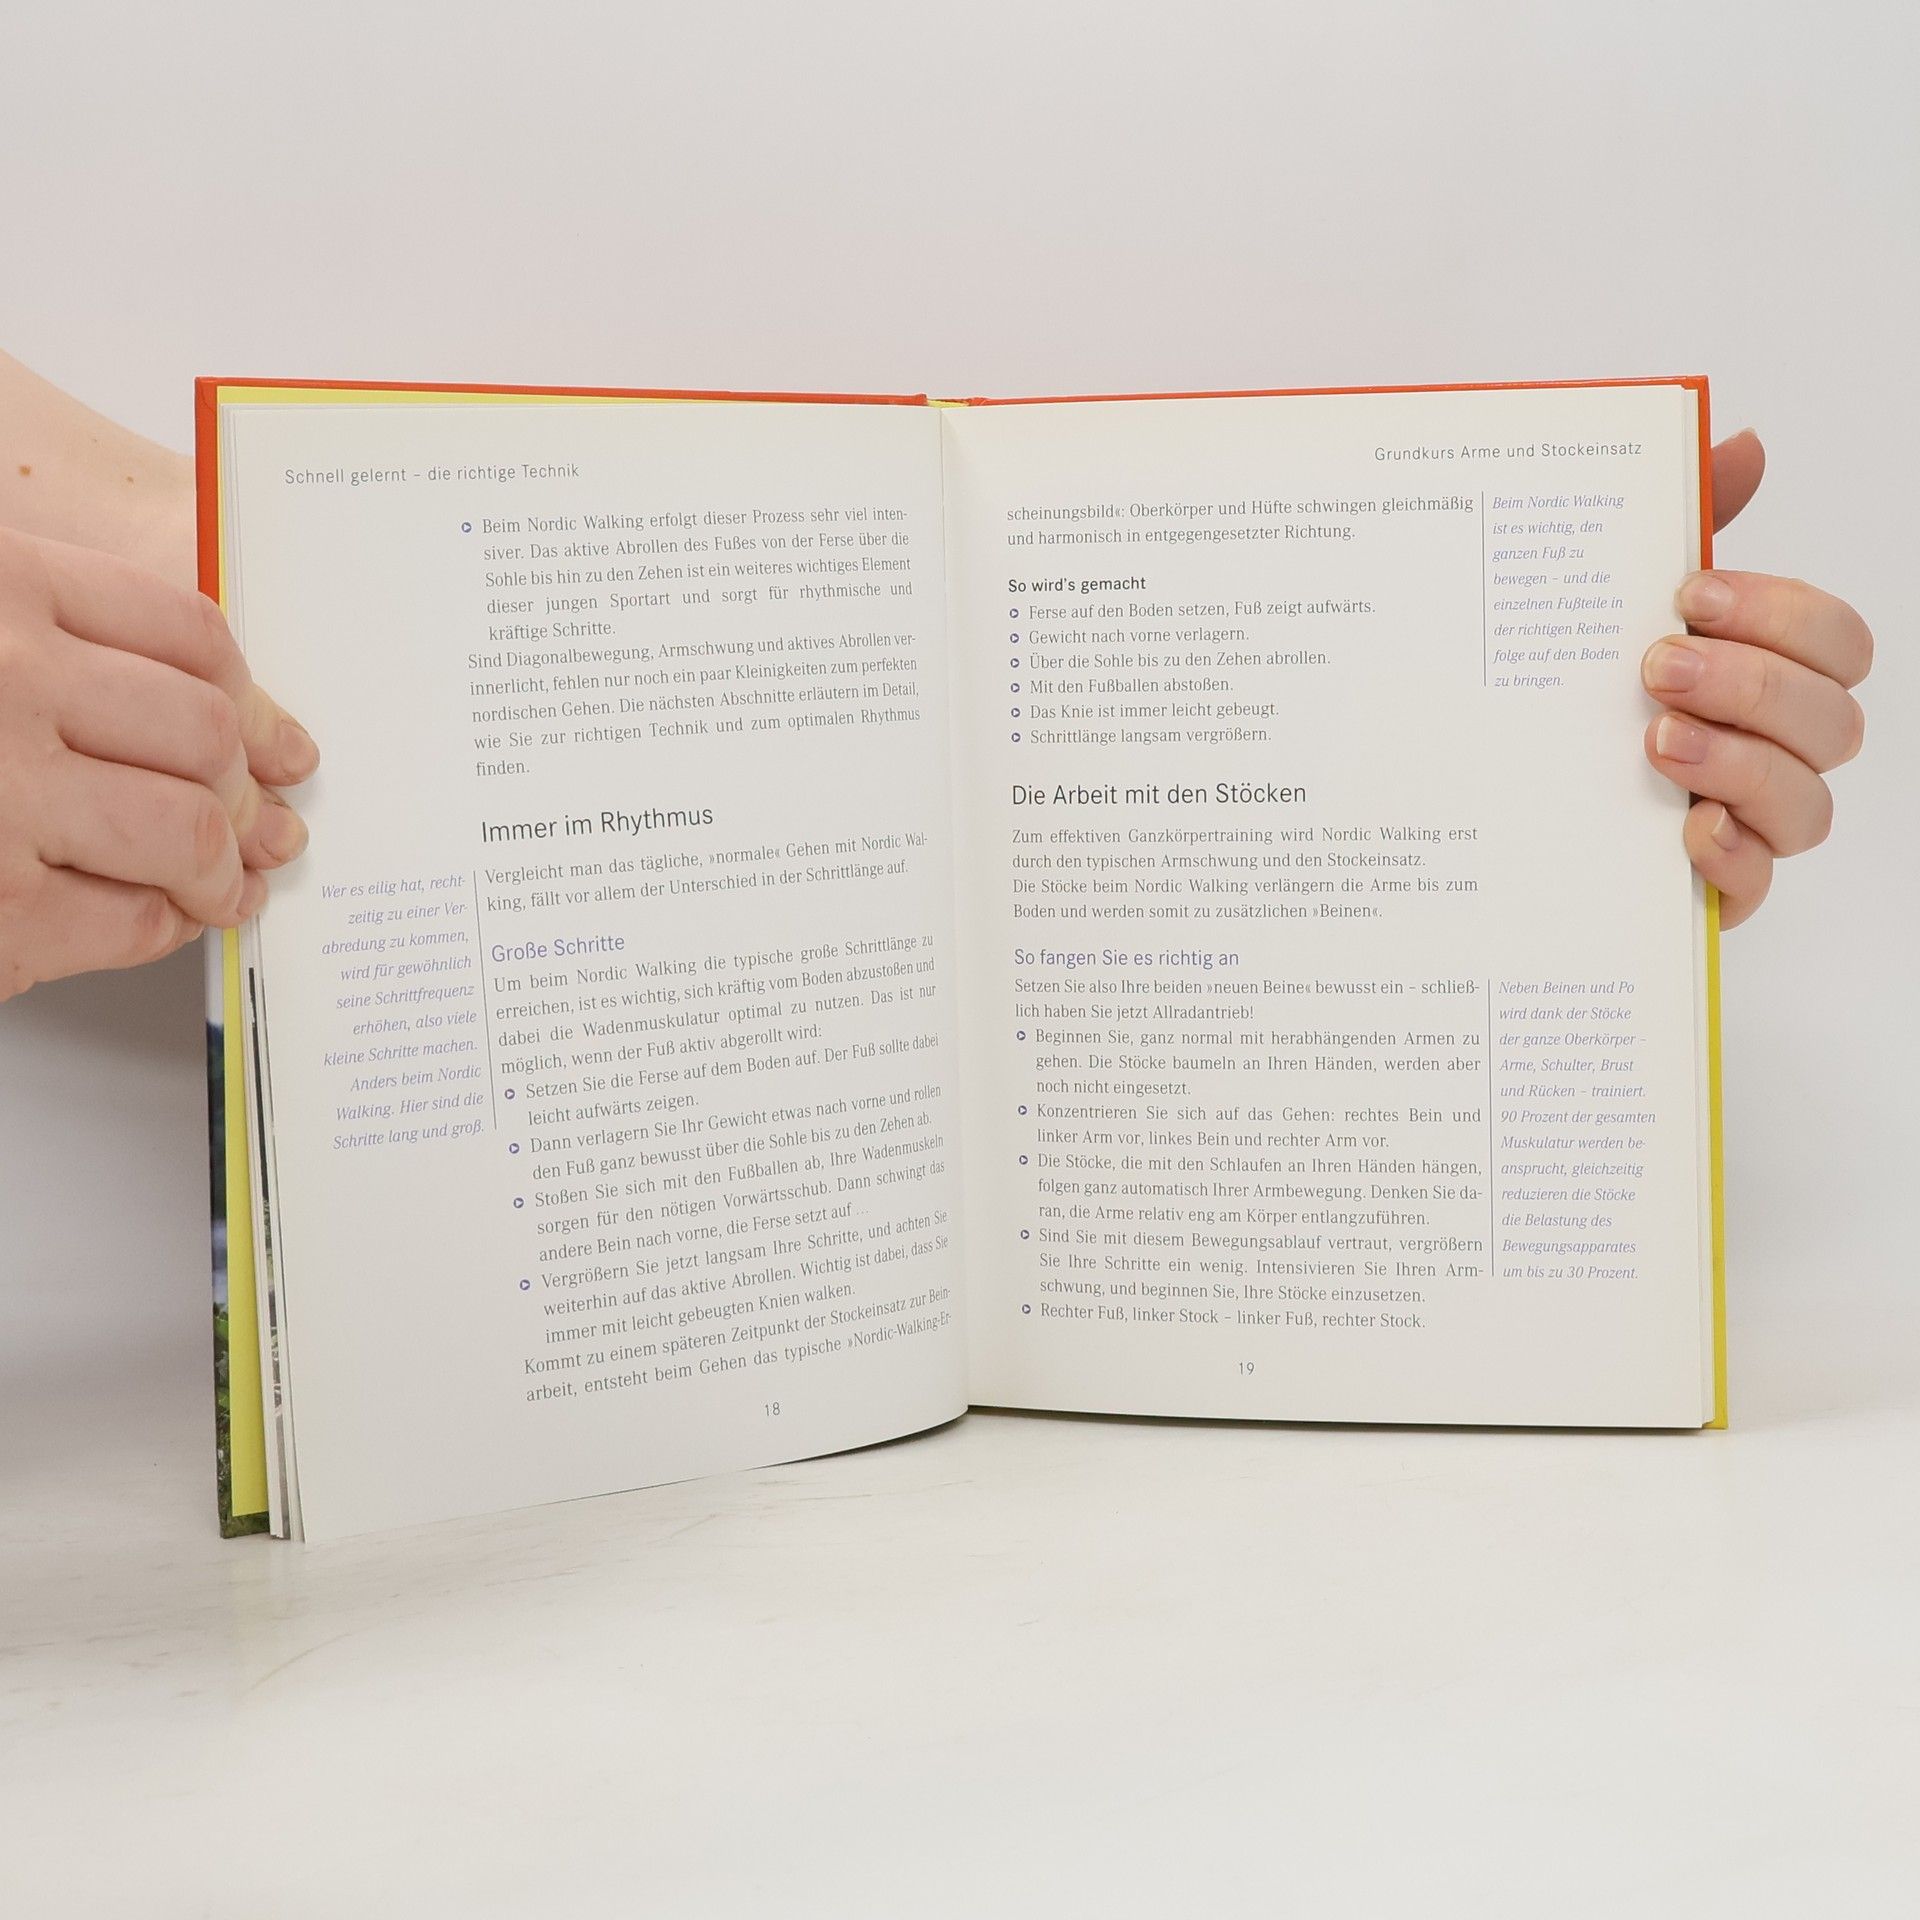 Schnell gelernt – die richtige Technik
Beim Nordic Walking erfolgt dieser Prozess sehr viel inten-
siver. Das aktive Abrollen des Fußes von der Ferse über die
Sohle bis hin zu den Zehen ist ein weiteres wichtiges Element
dieser jungen Sportart und sorgt für rhythmische und
kräftige Schritte.
Sind Diagonalbewegung, Armschwung und aktives Abrollen ver-
innerlicht, fehlen nur noch ein paar Kleinigkeiten zum perfekten
nordischen Gehen. Die nächsten Abschnitte erläutern im Detail,
wie Sie zur richtigen Technik und zum optimalen Rhythmus
finden.
Immer im Rhythmus
Vergleicht man das tägliche, »normale« Gehen mit Nordic Wal-
king, fällt vor allem der Unterschied in der Schrittlänge auf.
Wer es eilig hat, recht-
zeitig zu einer Ver-
abredung zu kommen,
wird für gewöhnlich
seine Schrittfrequenz
erhöhen, also viele
kleine Schritte machen.
Anders beim Nordic
Walking. Hier sind die
Schritte lang und groß.
Große Schritte
Um beim Nordic Walking die typische große Schrittlänge zu
erreichen, ist es wichtig, sich kräftig vom Boden abzustoßen und
dabei die Wadenmuskulatur optimal zu nutzen. Das ist nur
möglich, wenn der Fuß aktiv abgerollt wird:
Setzen Sie die Ferse auf dem Boden auf. Der Fuß sollte dabei
leicht aufwärts zeigen.
Dann verlagern Sie Ihr Gewicht etwas nach vorne und rollen
den Fuß ganz bewusst über die Sohle bis zu den Zehen ab.
Stoßen Sie sich mit den Fußballen ab, Ihre Wadenmuskeln
sorgen für den nötigen Vorwärtsschub. Dann schwingt das
andere Bein nach vorne, die Ferse setzt auf ...
Vergrößern Sie jetzt langsam Ihre Schritte, und achten Sie
weiterhin auf das aktive Abrollen. Wichtig ist dabei, dass Sie
immer mit leicht gebeugten Knien walken.
Kommt zu einem späteren Zeitpunkt der Stockeinsatz zur Bein-
arbeit, entsteht beim Gehen das typische »Nordic-Walking-Er-
18
Grundkurs Arme und Stockeinsatz
scheinungsbild«: Oberkörper und Hüfte schwingen gleichmäßig
und harmonisch in entgegengesetzter Richtung.
Beim Nordic Walking
ist es wichtig, den
ganzen Fuß zu
bewegen – und die
einzelnen Fußteile in
der richtigen Reihen-
folge auf den Boden
zu bringen.
So wird's gemacht
Ferse auf den Boden setzen, Fuß zeigt aufwärts.
Gewicht nach vorne verlagern.
Über die Sohle bis zu den Zehen abrollen.
Mit den Fußballen abstoßen.
Das Knie ist immer leicht gebeugt.
Schrittlänge langsam vergrößern.
Die Arbeit mit den Stöcken
Zum effektiven Ganzkörpertraining wird Nordic Walking erst
durch den typischen Armschwung und den Stockeinsatz.
Die Stöcke beim Nordic Walking verlängern die Arme bis zum
Boden und werden somit zu zusätzlichen »Beinen«.
So fangen Sie es richtig an
Setzen Sie also Ihre beiden »neuen Beine« bewusst ein – schließ-
lich haben Sie jetzt Allradantrieb!
Beginnen Sie, ganz normal mit herabhängenden Armen zu
gehen. Die Stöcke baumeln an Ihren Händen, werden aber
noch nicht eingesetzt.
Konzentrieren Sie sich auf das Gehen: rechtes Bein und
linker Arm vor, linkes Bein und rechter Arm vor.
Die Stöcke, die mit den Schlaufen an Ihren Händen hängen,
folgen ganz automatisch Ihrer Armbewegung. Denken Sie da-
ran, die Arme relativ eng am Körper entlangzuführen.
Sind Sie mit diesem Bewegungsablauf vertraut, vergrößern
Sie Ihre Schritte ein wenig. Intensivieren Sie Ihren Arm-
schwung, und beginnen Sie, Ihre Stöcke einzusetzen.
Rechter Fuß, linker Stock – linker Fuß, rechter Stock.
Neben Beinen und Po
wird dank der Stöcke
der ganze Oberkörper –
Arme, Schulter, Brust
und Rücken – trainiert.
90 Prozent der gesamten
Muskulatur werden be-
ansprucht, gleichzeitig
reduzieren die Stöcke
die Belastung des
Bewegungsapparates
um bis zu 30 Prozent.
19